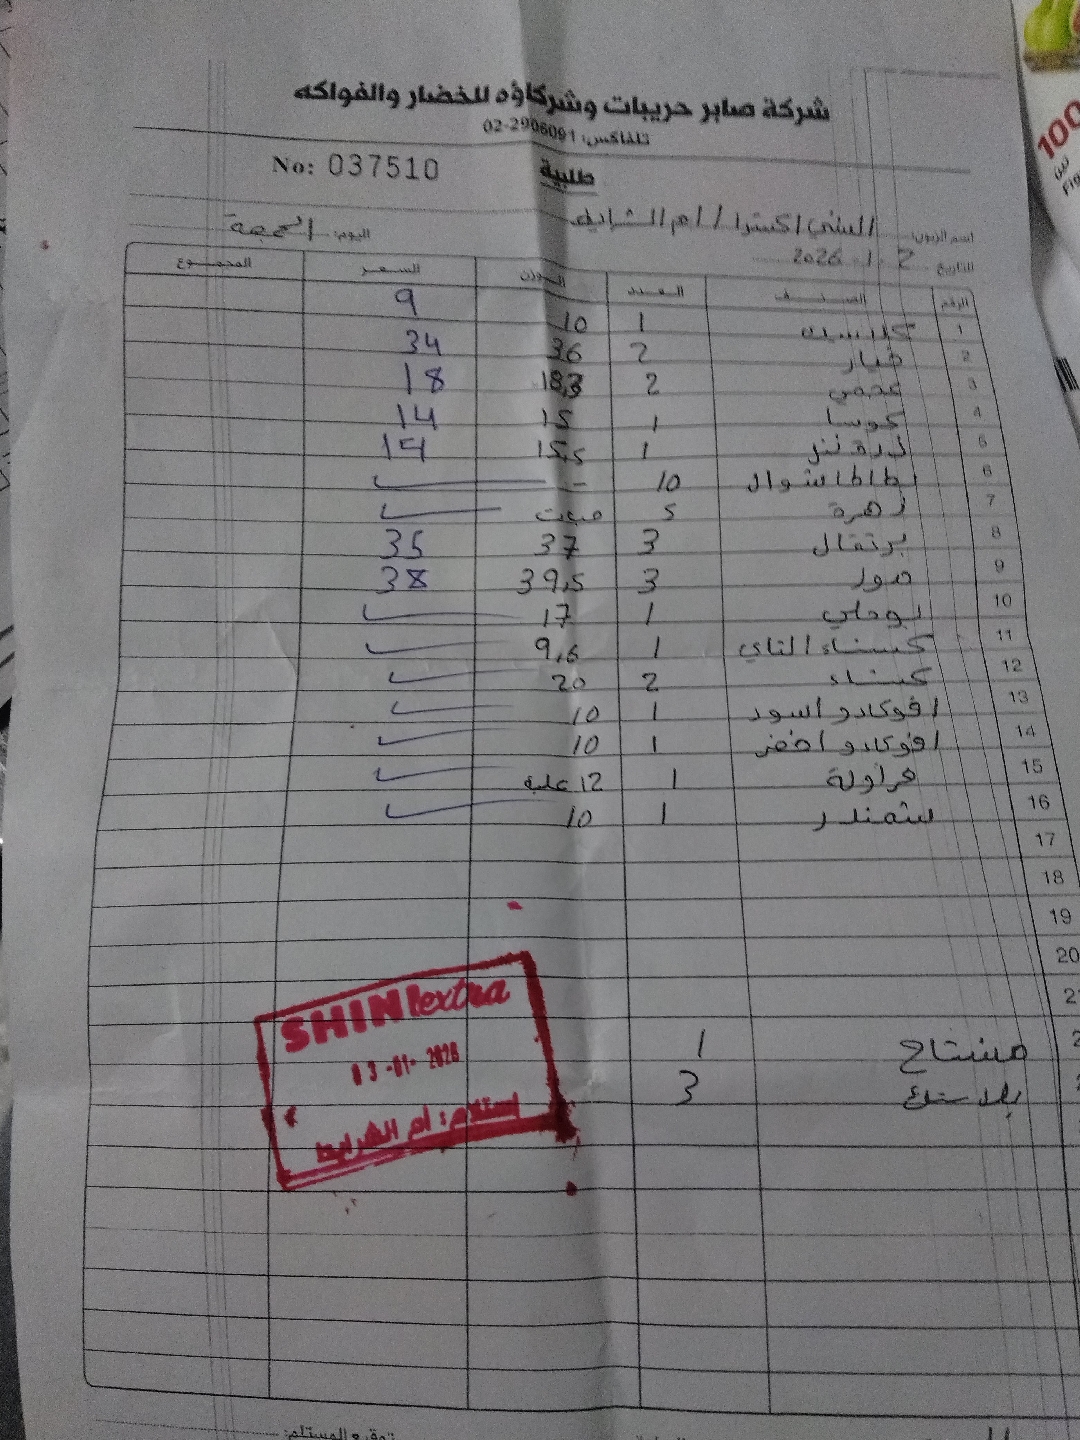 شركة صابر حريبات وشركاؤه للخضار والفواكه
تلفاكس: 02-2906091
طلبية
No: 037510
اسم الزبون: الشني اكسترا / ام الشرايط اليوم: الجمعة
التاريخ 2 . 1 . 2026
الرقم الصنف العدد الوزن السعر المجموع
1 كلاسيك 1 10 9
2 خيار 2 36 34
3 عجمي 2 18,3 18
4 كوسا 1 15 14
5 1 15,5 14
6 بطاطا شوال 10 -
7 زهرة 5
8 برتقال 3 37 35
9 موز 3 39,5 38
10 1 17
11 كستناء 1 9,6
12 كستناء 2 20
13 افوكادو اسود 1 10
14 افوكادو اخضر 1 10
15 فراولة 1 12 علبة
16 شمندر 1 10
17
18
19
20
مشتاح 1
بلاستك 3
SHINI extra
03 -01- 2026
إستلام: أم الشرايط
توقيع المستلم: